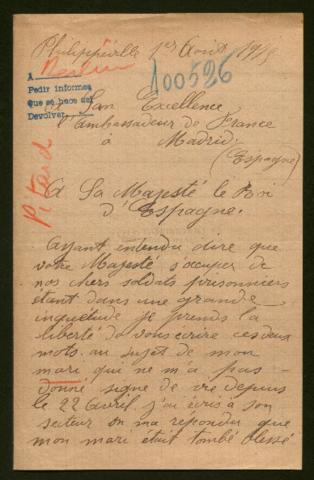 Philippeville 1er Août 1915
Berlin
100526
A
Pedir informes
Que se hace del
Devolver
Pitaud
Son Excellence
l'Ambassadeur de France
à Madrid.
(Espagne)
A Sa Majesté le Roi
d'Espagne.
Ayant entendu dire que
votre Majesté s'occuper de
nos chers soldats prisonniers
étant dans une grande
inquiétude je prends la
liberté de vous écrire ces deux
mots au sujet de mon
mari qui ne m'a pas
donné signe de vie depuis
le 22 Avril. j'ai écris à son
secteur on ma répondu que
mon mari était tombé blessé